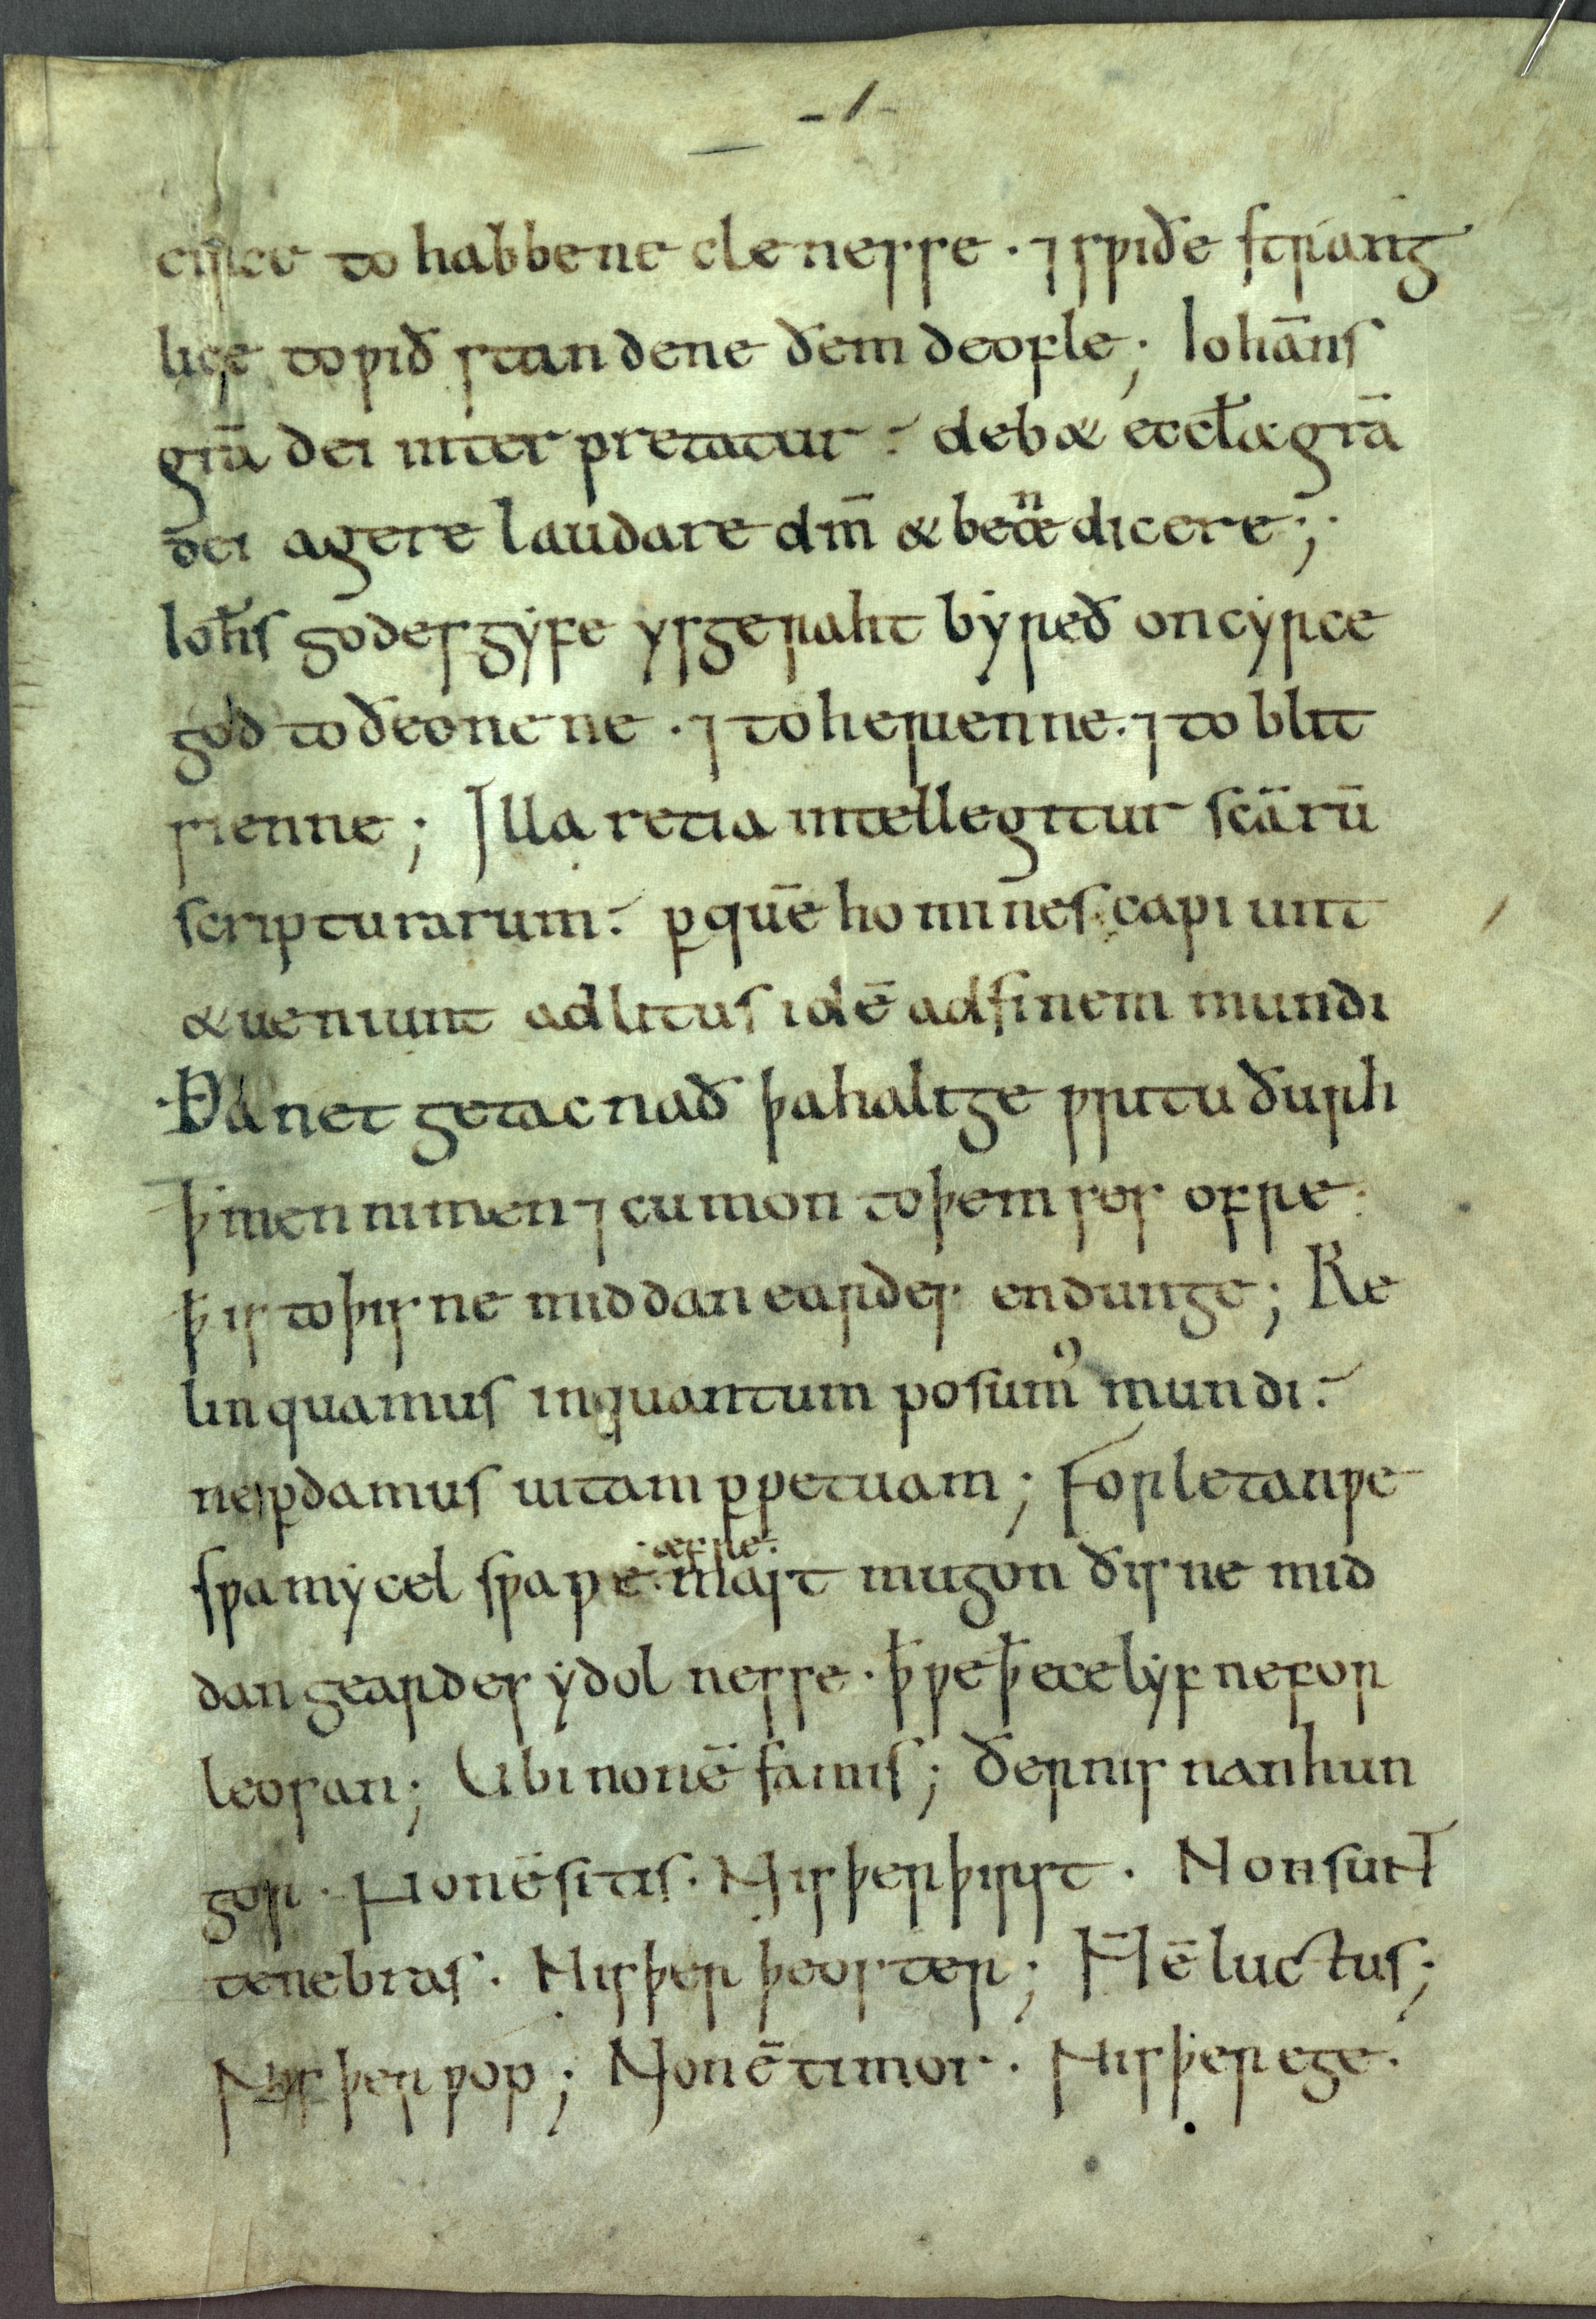 cirice to habbene clenesse · ⁊ swiðe strang
lice to wið standene ðem deofle; Iohan̄s
grā dei inter pretatur : deb& eccłæ grā
dei agere laudare dm̄ & benedicere;
Ioħs godes gẏfe ys geraht bẏreð on cẏrce
god to ðeonenne · ⁊ to heruenne · ⁊ to blit
sienne; Illa retia intellegitur scārū
scripturarum : ꝑ quē homines capiunt
& ueniunt ad litus idē ad finem mundi
Ða net getacnað þa halige writu ðurh
ꝥ men nimen ⁊ cumon to þem sos ofre ·
ꝥ is to þisne middan eardes endunge; Re
linquamus inquantum posumꝰ mundi :
ne ꝑdamus uitam ꝑpetuam; Forletan we
swa mẏcel swa we · æfre · mast mugon ðisne mid
dan geardes ẏdolnesse · ꝥ we ꝥ ece lẏf ne for
leosan; Ubi non ē famis; ðer nis nan hun
gor · Non ē sitis · Nis þer þurst · Non sunt
tenebras · Nis þer þeoster; N̄ ē luctus;
Nys þer wop; Non ē timor · Nis þer ege ·